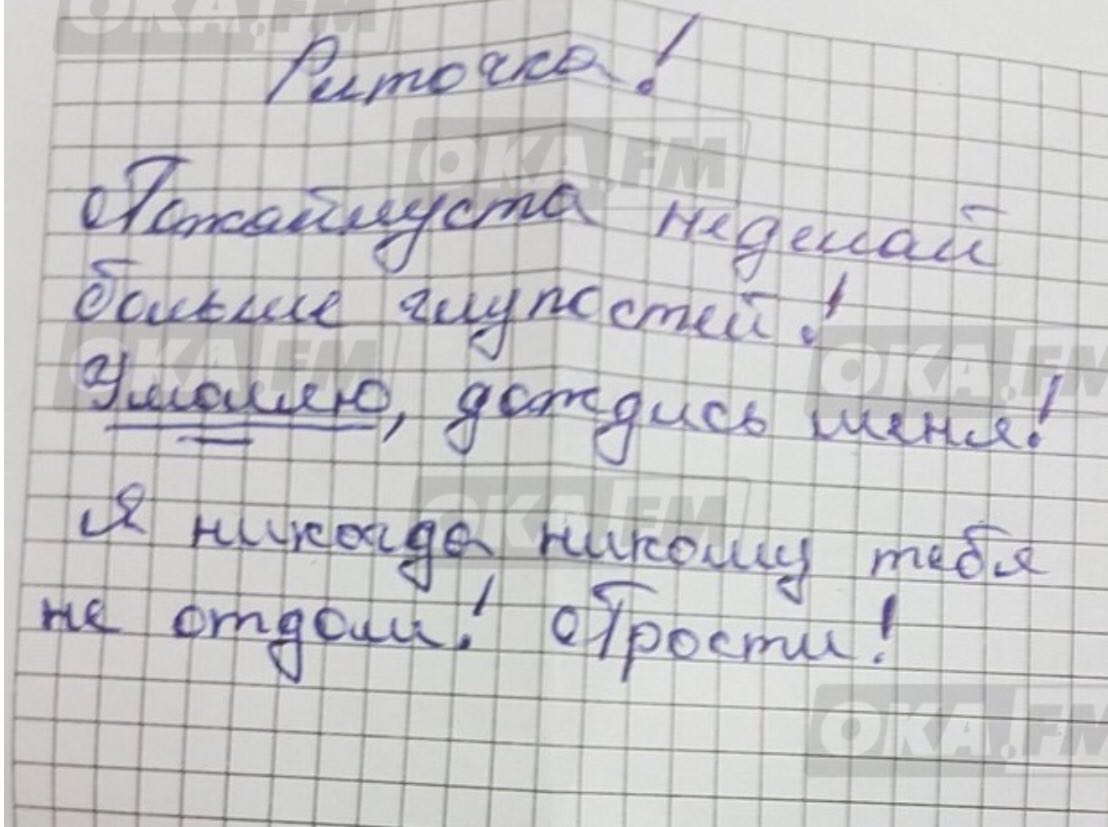 Риточка!
Пожалуйста неделай
больше глупостей!
Умоляю, дождись меня!
Я никогда никому тебя
не отдам! Прости!
OKA.FM
OKA.FM
OKA.FM
OKA.FM
OKA.FM
OKA.FM